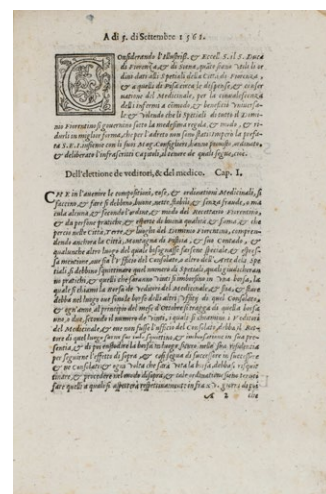 A di 5. di Settembre 1561.
Considerando l'Illustriss. & Eccell. S. il S. Duca
di Fiorenza, & di Siena, quale siano utili li or
dini dati alli Spetiali della Città di Fiorenza,
& a quella di Pisa circa le dispense, & confet
tioni del Medicinale, per la convalescenza
delli infermi a comodo, & benefitio Universa-
le & volendo che li Spetiali di tutto il Domi-
nio Fiorentino si governino sotto la medesima regola, & modo, & ri-
durli in miglior forma, che per l'adreto non sono stati
S. E. I. insieme con li suoi Mag. Consiglieri, hanno provisto, ordinato,
& deliberato l'infrascritti Capitoli, il tenore de quali segue, cioè.
Dell'elettione de veditori, & del medico. Cap. I.
CHE in l'avenire le compositioni, cose, & ordinationi Medicinale, si
faccino, & fare si debbino, buone, nette, stabili, & senza fraude, o ma
cula alcuna & secondo l'ordine, & modo del Recettario Fiorentino,
& da persone pratiche & esperte di buona qualità & fama, & che
percio nelle Città, Terre, & luoghi del Dominio Fiorentino, compren-
dendo anchora la Città, Montagna di Pistoia, & suo Contado, &
qualunche altro luogo del quale bisognasse farsene speciale, & espres-
sa mentione, per l'Uffitio del Consolato, o altro dell'Arte delli Spe
tiali si debbino squittinare quel numero di Spetiali, quali giudicheran
no pratichi, & quelli che saranno vinti si imborsino in una borsa, la
quale si chiami la Borsa de Veditori del Medicinale, & stia, & stare
debba nel luogo ove stanno le borse delli altri Uffitij di quel Consolato,
& ogni anno al principio del mese d'Ottobre si tragga di quella borsa
uno, o due, secondo il numero de vinti, i quali si chiamino i Veditori
del Medicinale, & ove non fusse l'uffitio del Consolato, debba il Ret-
tore di quel luogo farne fare lo squittino, & imborsatione in sua pre-
sentia, & di poi custodire la borsa in luogo sicuro nella sua residentia
per seguirne l'effetto di sopra, & così segua di successore in successore
& ne Consolati & ogni volta che sarà vota la borsa, debbasi resquit-
tinare, & procedere nel modo disopra, & tale ordinatione sieno tenuti
fare quelli a quali si aspetterà respettivamente infra X V. giorni da poi
A 2 che